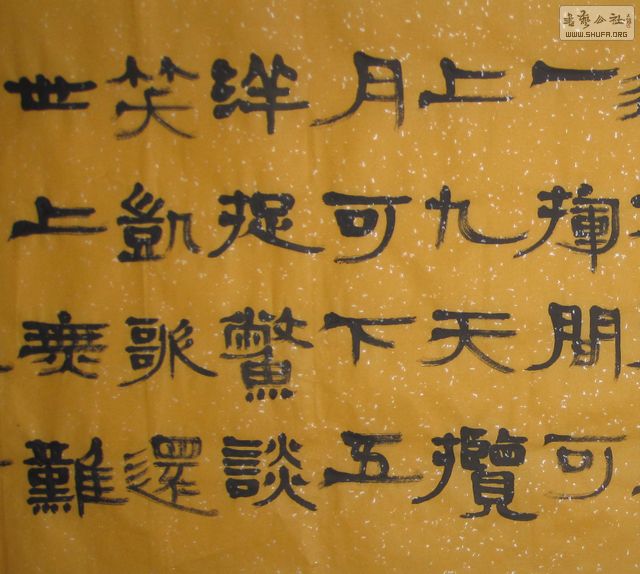 一揮間可
上九天攬
月可下五
洋捉鱉談
笑凱歌還
世上無難
書藝公社
WWW.SHUFA.ORG